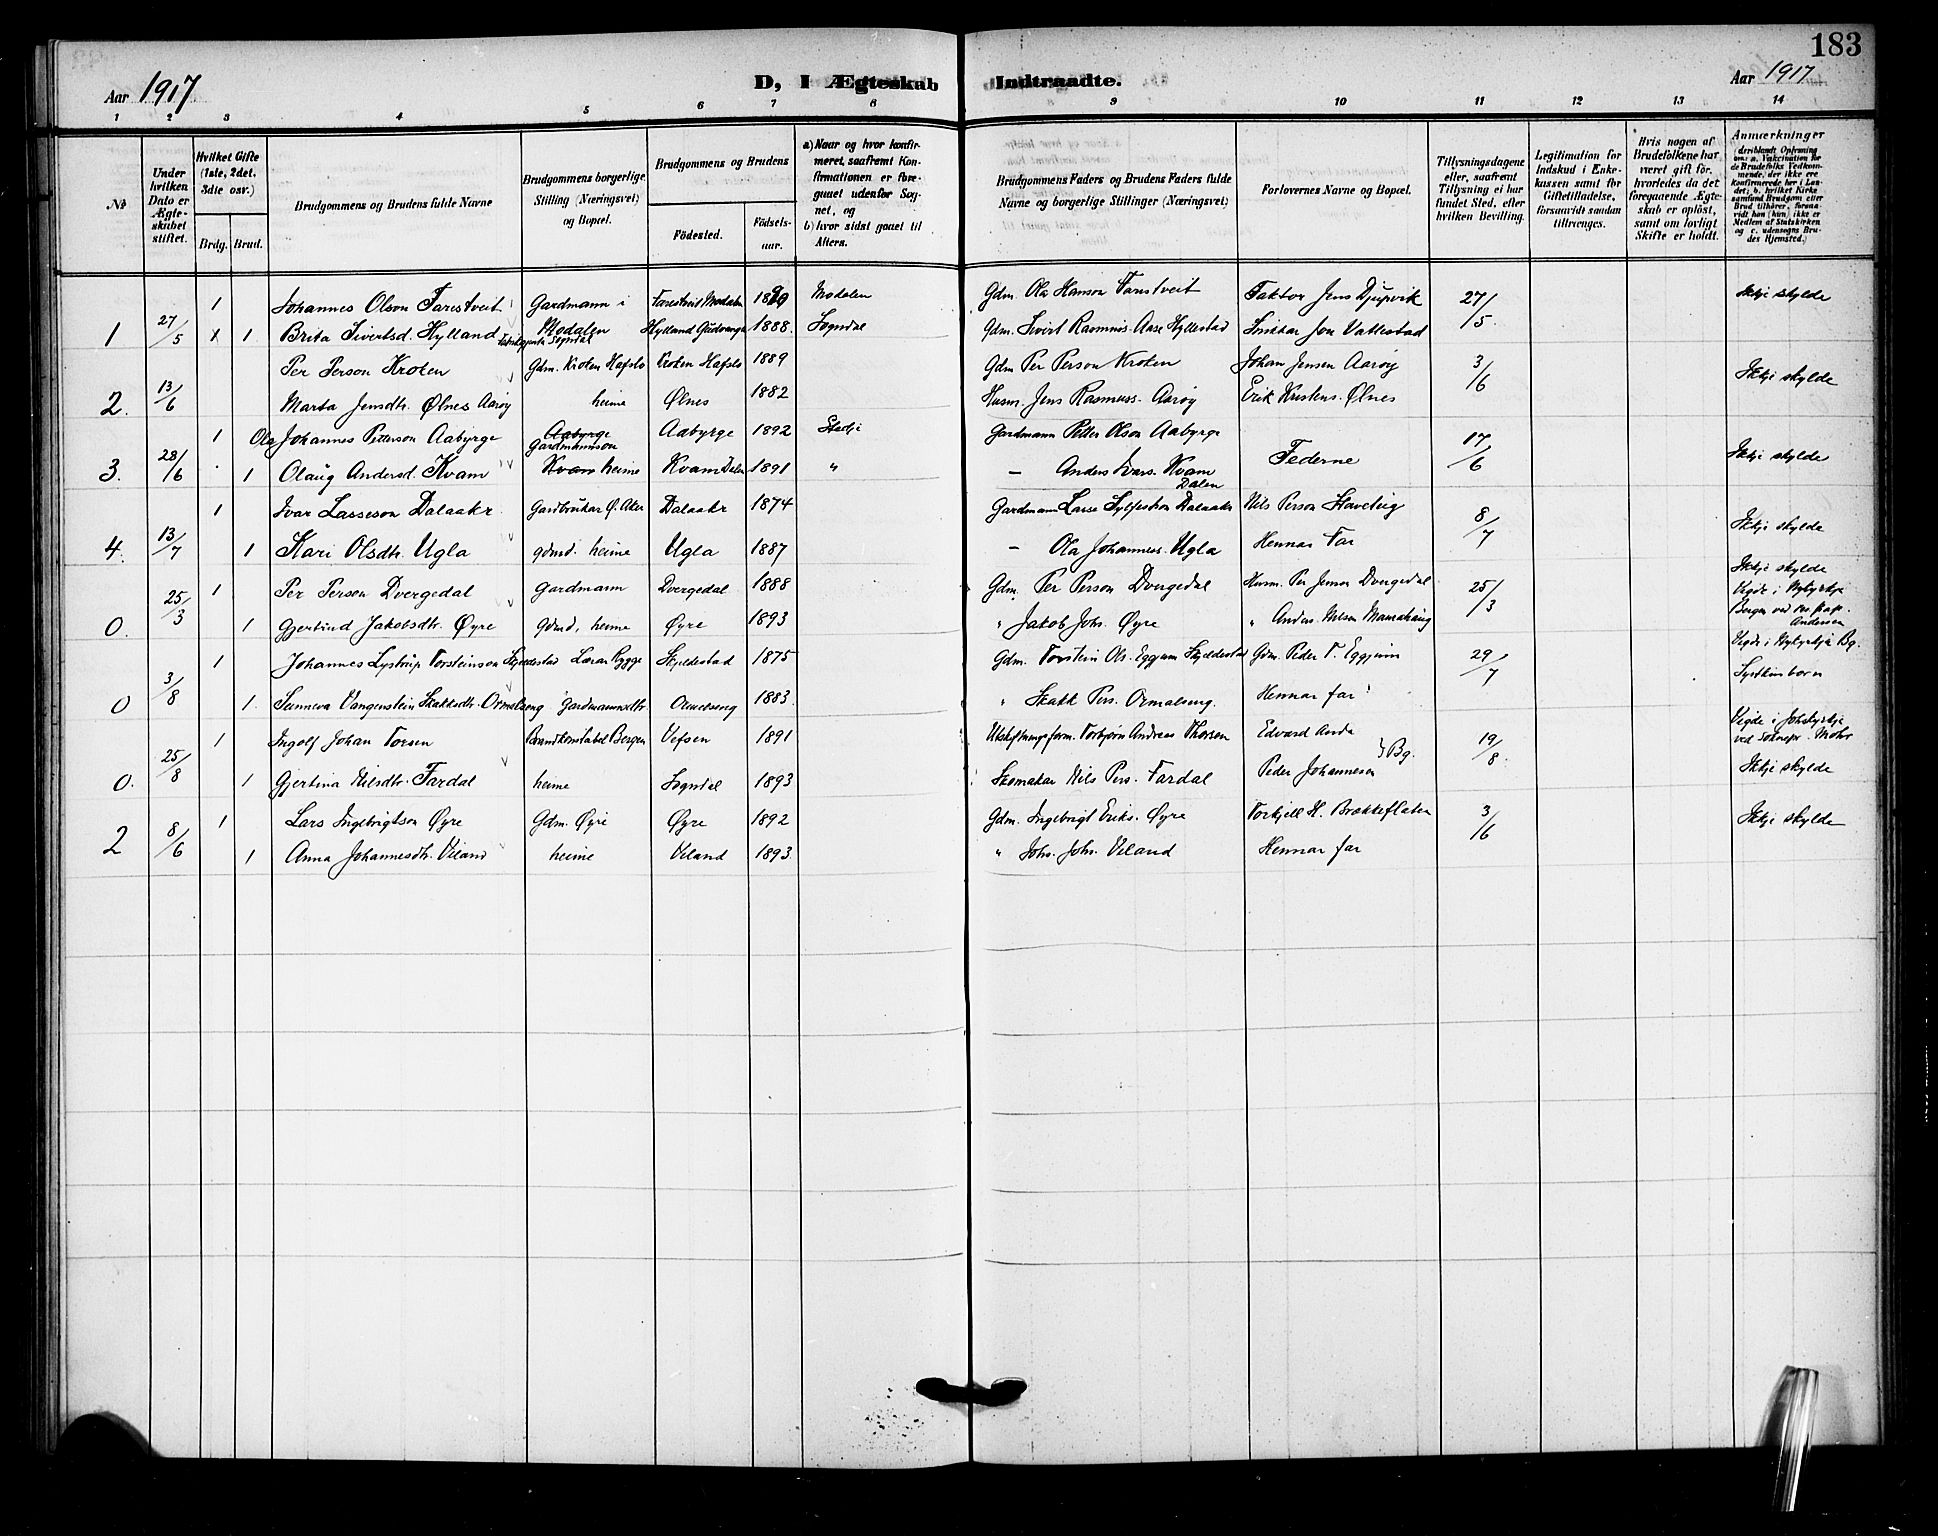 183
Aar 1917 D, I Ægteskab Indtraadte. Aar 1917
1 2 3 4 5 6 7 8 9 10 11 12 13 14
№
Under hvilken Dato er Ægteskabet stiftet.
Hvilket Gifte (1ste, 2det, 3die osv.)
Brdg. Brud.
Brudgommens og Brudens fulde Navne
Brudgommens borgerlige Stilling (Næringsvei) og Bopæl.
Brudgommens og Brudens
Födested. Födselsaar.
a) Naar og hvor konfirmeret, saafremt Konfirmationen er foregaaet udenfor Sognet, og
b) hvor sidst gaaet til Alters.
Brudgommens Faders og Brudens Faders fulde Navne og borgerlige Stillinger (Næringsvei)
Forlovernes Navne og Bopæl.
Tillysningsdagene eller, saafremt Tillysning ei har fundet Sted, efter hvilken Bevilling.
Legitimation for Indskud i Enkekassen samt for Giftetilladelse, forsaavidt saadan tiltrænges.
Hvis nogen af Brudefolkene har været gift før, hvorledes da det foregaaende Ægteskab er opløst, samt om lovligt Skifte er holdt.
Anmærkninger deriblandt Oplysning om: a. Vakcination for de Brudefolks Vedkommende, der ikke ere konfirmerede her i Landet; b. hvilket Kirkesamfund Brudgom eller Brud tilhører, forsaavidt han (hun) ikke er Medlem af Statskirken og c. udensogns Brudes Hjemsted.)
1 Johannes Olson Farestveit Gardmann i Farestveit Modalen 1890 Modalen Gdm. Ola Hanson Farestveit Faktor Jens Djupvik 27/5 Ikkje skylde
1 27/5 1 Brita Sivertsd. Hylland Modalen Sogndal Hylland Gudvangen 1888. Sogndal Gdm. Sivert Rasmus. Aase Hyllestad Snikkar Jon Vallestad
Per Person Kroken Gdm. Kroken Hafslo Kroken Hafslo 1889 Gdm Per Person Kroken Johan Jensen Aarøy 3/6 Ikkje skylde
2. 13/6 Marta Jensdtr. Ølnes Aarøy heime Ølnes 1882 Husm. Jens Rasmuss. Aarøy Erik Kristens. Ølnes
1 Ola Johannes Petterson Aabyrge Aabyrge Gardmannson Aabyrge 1892 Stedje Gardmann Petter Olson Aabyrge 17/6
3. 28/6 1 Olaug Andersd. Kvam Kvam heime Kvam Dalen 1891 " — Anders Ivars. Kvam Dalen Federne Ikkje skylde
1 Ivar Lasseson Dalaaker Gardbrukar Ø. Aker Dalaakr 1874 Gardmann Lasse Sylfestson Dalaaker Nils Person Stavteig 8/7
4. 13/7 1 Kari Olsdtr. Ugla gdmd. heime Ugla 1887 — Ola Johanness. Ugla Hennar Far Ikkje skylde
1 Per Person Dvergedal Gardmann Dvergedal 1888 Gdm. Per Person Dvergedal Husm. Per Jenson Dvergedal 25/3 Ikkje skylde
0. 25/3 1 Gjertrud Jakobsdtr. Øyre Gdmd, heime Øyre 1893 " Jakob Johs. Øyre " Anders Nilsen Maurahaug Vigde i Nykyrkja Bergen ved Andersen
1 Johannes Lystrup Torsteinson Skjeldestad Lærar Rygge Skjeldestad 1875 Gdm. Torstein Ols. Eggum Skjeldestad Gdm. Peder T. Eggjum 29/7 Vigde i Nykyrkja Bg.
0 3/8 1. Sunneva Vangenstein Skakksdtr. Ormelseng Gardmannsdtr. Ormelseng 1883. " Skakk Pers. Ormelseng. Hennar far Syskinborn
1 Ingolf Johan Torsen Brandkonstabel Bergen Vefsen 1891 Utskiftningsform. Torbjørn Andreas Thorsen Edvard Anda } Bg. 19/8. Vigde i Johskyrkja ved Soknepr. Mohr
0. 25/8 1 Gjertina Nilsdtr. Fardal heime Sogndal 1893 Skomakar Nils Pers. Fardal Peder Johannesen Ikkje skylde
1 Lars Ingebrigtson Øyre Gdm. Øyre Øyre 1892 Gdm. Ingebrigt Eriks. Øyre Torkjell H. Brækkeflaten 3/6 Ikkje skylde
2 8/6 1 Anna Johannesdtr. Veland heime Veland 1893 " Johs. Johs. Veland Hennar far